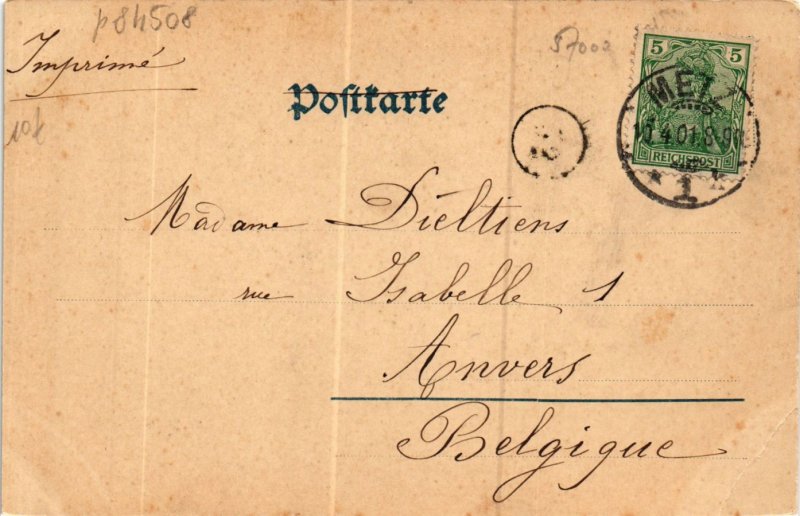 p84508
57002
Imprimé
5 5
Postkarte
METZ
4.01.8-9
REICHSPOST
1
Madame Dieltiens
rue Isabelle 1
Anvers
Belgique